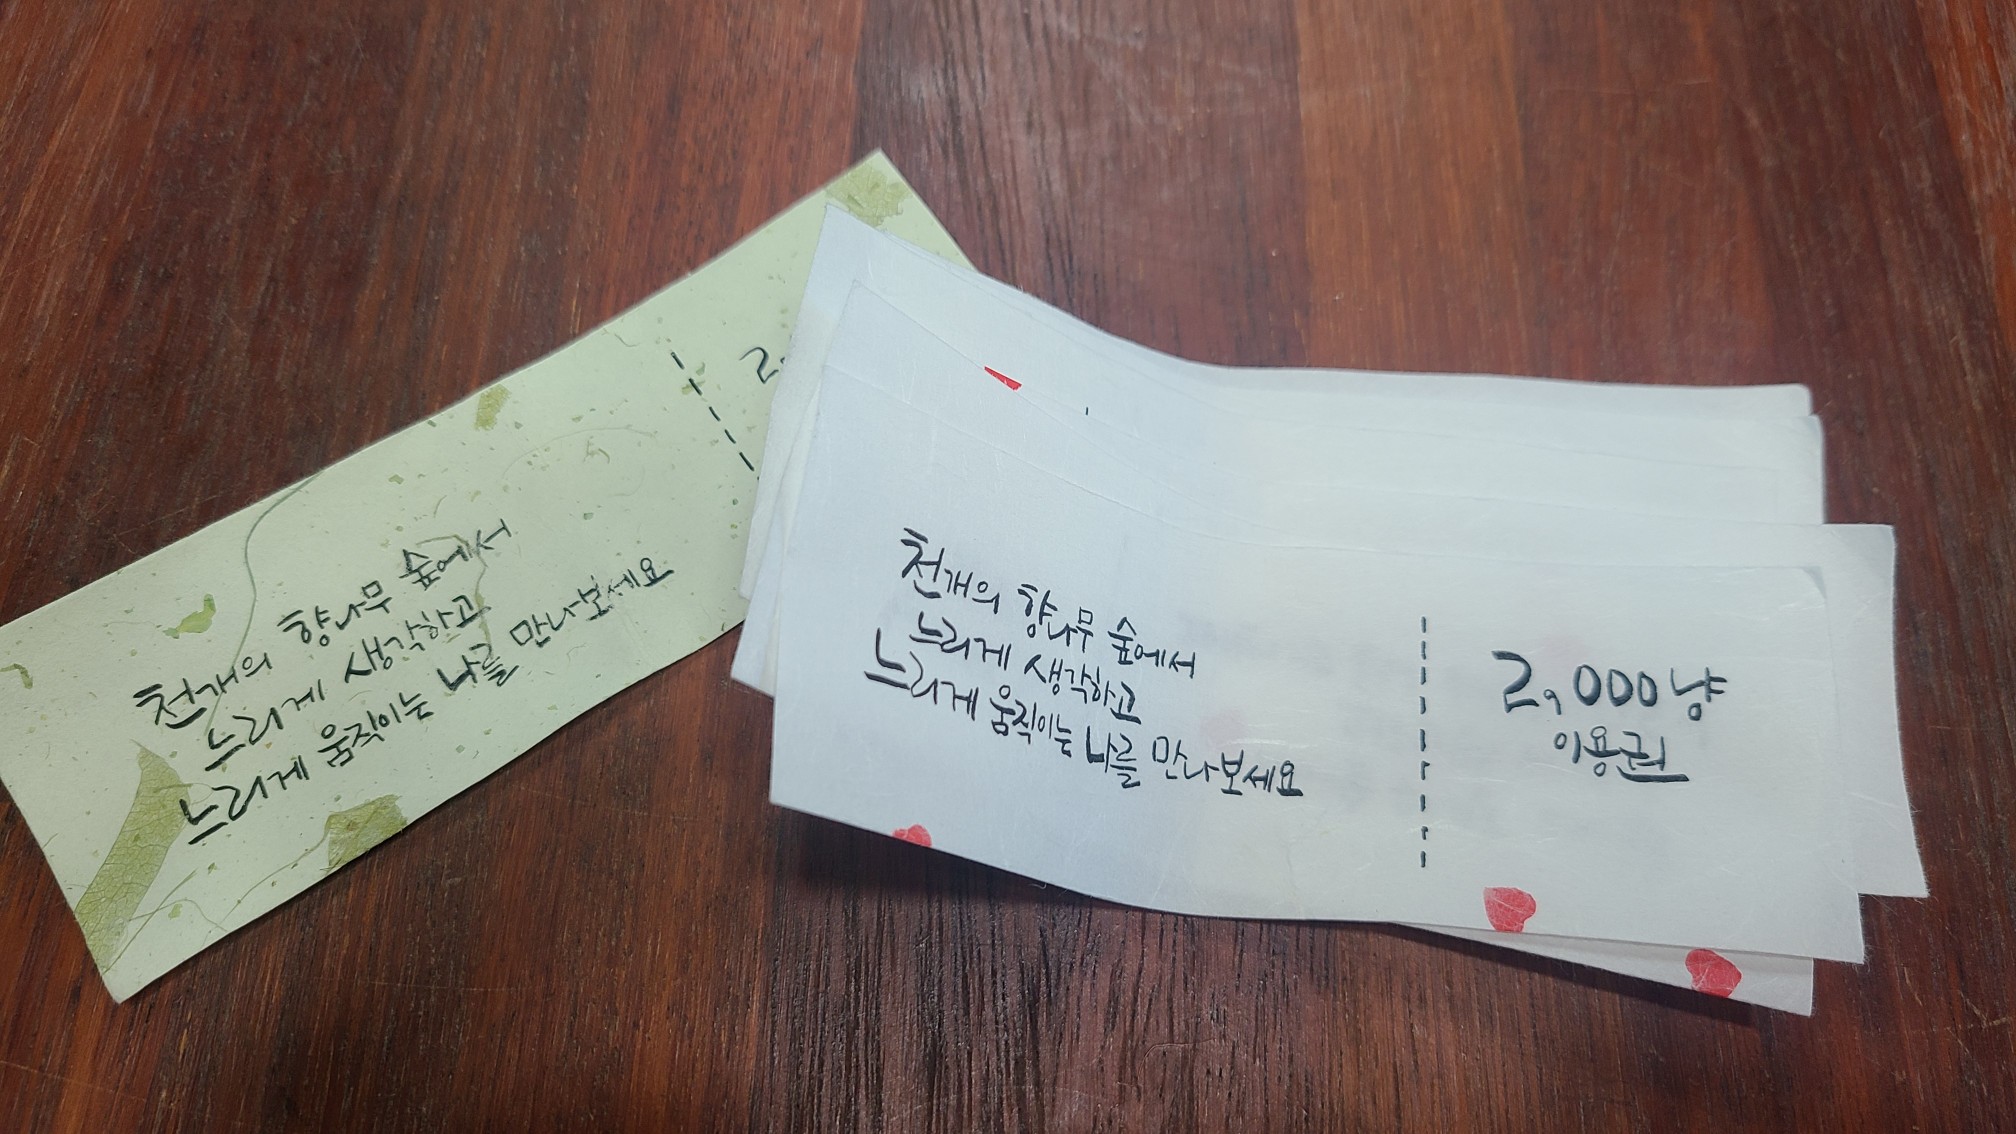 천개의 향나무 숲에서
느리게 생각하고
느리게 움직이는 나를 만나보세요
2,
천개의 향나무 숲에서
느리게 생각하고
느리게 움직이는 나를 만나보세요
2,000냥
이용권